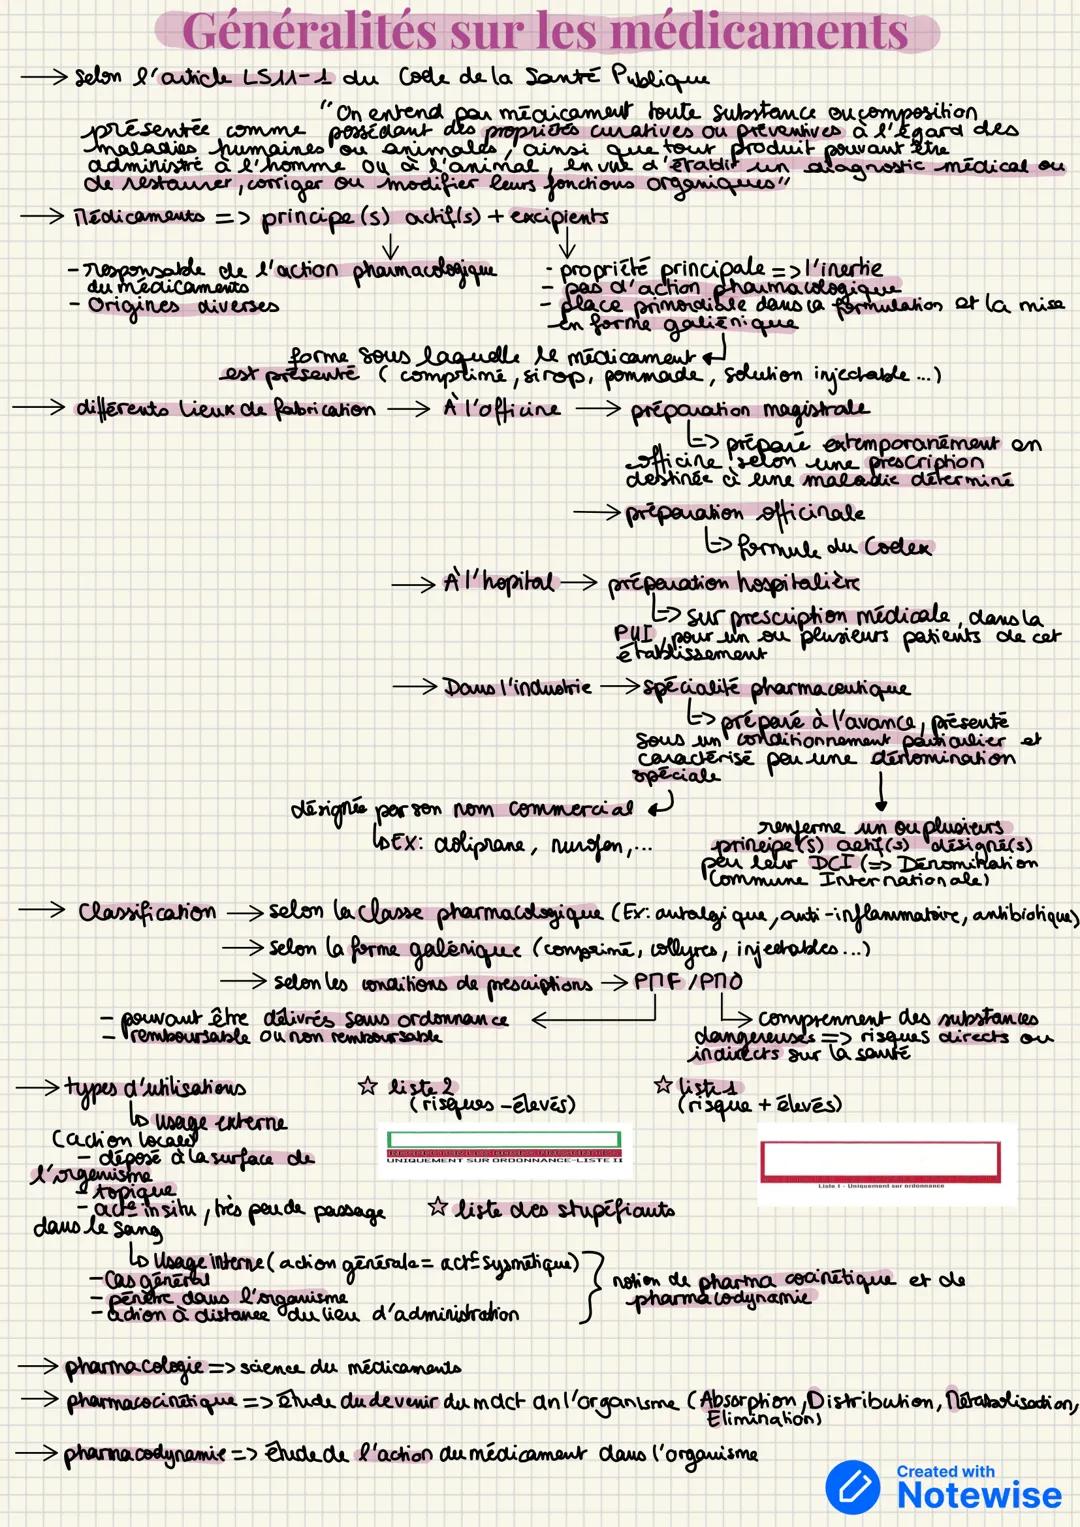 Généralités sur les médicaments
→ selon l'article L511-1 du Code de la Santé Publique
"On entend par médicament toute substance ou composition
présentée comme possédant des propriétés curatives ou préventives à l'égard des
maladies humaines ou animales, ainsi que tout produit pouvant être
administré à l'homme ou à l'animal, en vue d'établir un diagnostic médical ou
de restaurer, corriger ou modifier leurs fonctions organiques"
→ Médicaments => principe(s) actif(s) + excipients
- responsable de l'action pharmacologique
du médicaments
- Origines diverses
- propriété principale => l'inertie
- pas d'action pharmacologique
- place primordiale dans la formulation et la mise
en forme galiénique
forme sous laquelle le médicament
est présenté (comprimé, sirop, pommade, solution injectable ...)
→ différents lieux de fabrication → À l'officine → préparation magistrale
=> préparé extemporanément en
officine selon une prescription
destinée à une maladie déterminé
→ préparation officinale
=> formule du Codex
→ À l'hopital → préparation hospitalière
=> sur prescription médicale, dans la
PUI, pour un ou plusieurs patients de cet
établissement
→ Dans l'industrie → spécialité pharmaceutique
=> préparé à l'avance, présenté
sous un conditionnement particulier et
caractérisé par une dénomination
spéciale
désignée par son nom commercial
↳ EX: doliprane, nurofen,...
renferme un ou plusieurs
principe(s) actif(s) désigné(s)
par leur DCI (=> Dénomination
Commune Internationale)
→ Classification → selon la classe pharmacologique (Ex: antalgique, anti-inflammatoire, antibiotique)
→ selon la forme galénique (comprimé, collyres, injectables...)
→ selon les conditions de prescriptions → PMF / PMO
- pouvant être délivrés sans ordonnance
- remboursable ou non remboursable
→ comprennent des substances
dangereuses => risques directs ou
indirects sur la santé
→ types d'utilisations
☆ liste 2
(risques - élevés)
☆ liste 1
(risque + élevés)
↳ usage externe
(action locale)
- déposé à la surface de
l'orgenisme
- topique
- act° in situ, très peu de passage
dans le sang
RESPECTER LES DOSES PRESCRITES
UNIQUEMENT SUR ORDONNANCE-LISTE II
Liste I - Uniquement sur ordonnance
☆ liste des stupéfiants
↳ Usage interne (action générale = act° sysmétique)
- Cas général
- pénètre dans l'organisme
- action à distance du lieu d'administration
notion de pharma cocinétique et de
pharmacodynamie
→ pharmacologie => science du médicaments
→ pharmacocinétique => étude du devenir du mdct dn l'organisme (Absorption, Distribution, Métabolisation,
Élimination)
→ pharmacodynamie => étude de l'action du médicament dans l'organisme
Created with
Notewise